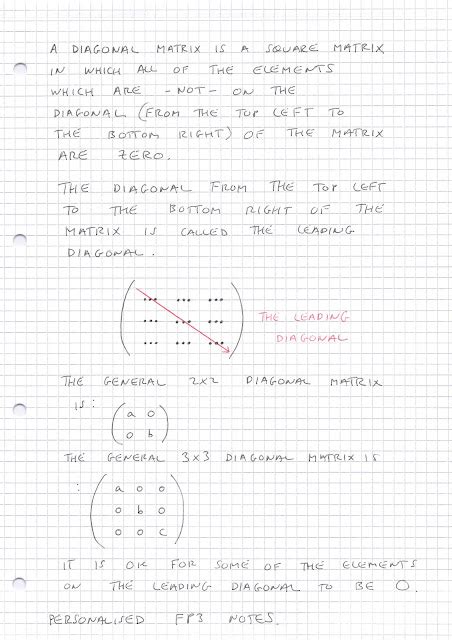 A DIAGONAL MATRIX IS A SQUARE MATRIX
IN WHICH ALL OF THE ELEMENTS
WHICH ARE -NOT- ON THE
DIAGONAL (FROM THE TOP LEFT TO
THE BOTTOM RIGHT) OF THE MATRIX
ARE ZERO.
THE DIAGONAL FROM THE TOP LEFT
TO THE BOTTOM RIGHT OF THE
MATRIX IS CALLED THE LEADING
DIAGONAL.
... ... ...
... ... ...
... ... ...
THE LEADING
DIAGONAL
THE GENERAL 2x2 DIAGONAL MATRIX
IS:
a 0
0 b
THE GENERAL 3x3 DIAGONAL MATRIX IS
:
a 0 0
0 b 0
0 0 c
IT IS OK FOR SOME OF THE ELEMENTS
ON THE LEADING DIAGONAL TO BE 0.
PERSONALISED FP3 NOTES.